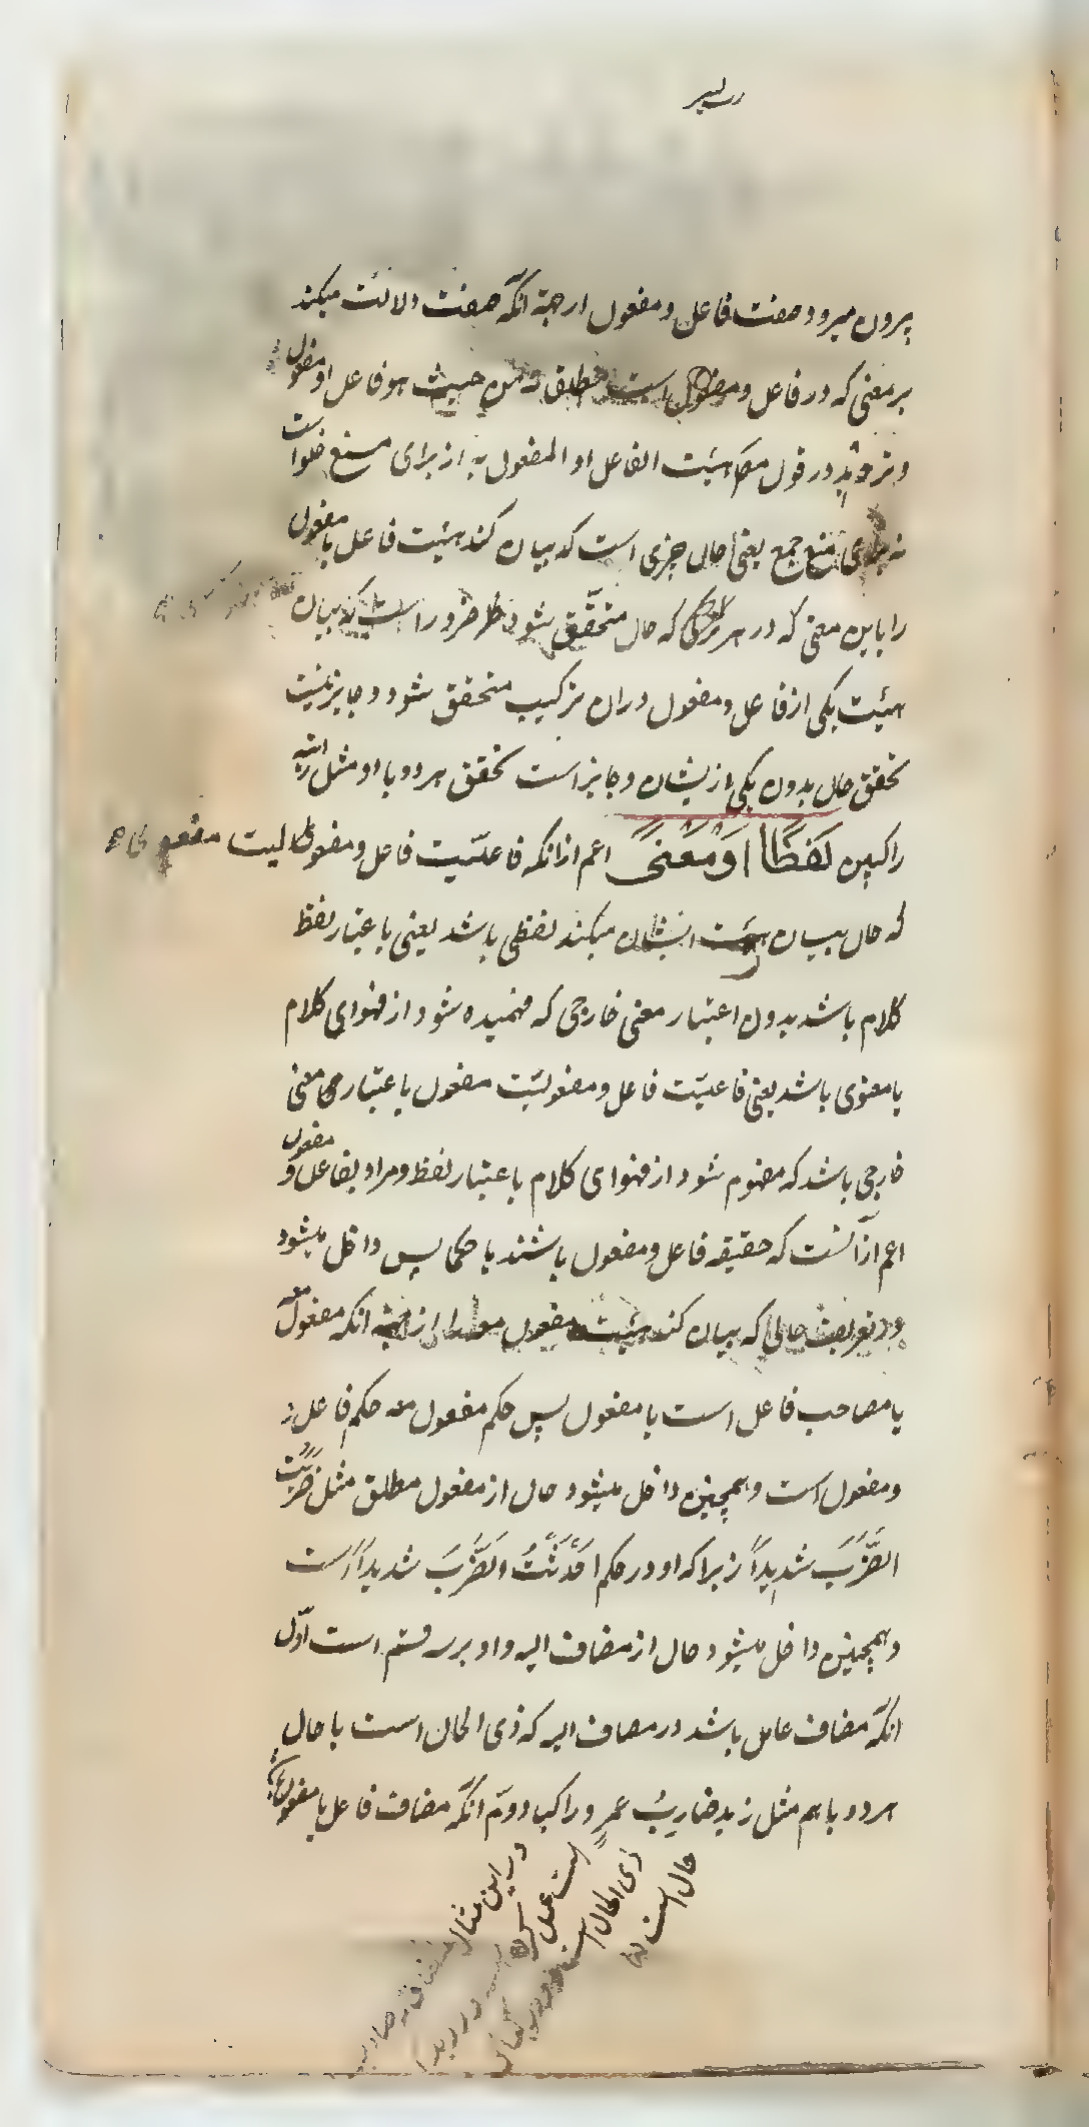 بیرون میرود صفت فاعل و مفعول ازجهة انکه صفت دلالت میکند
بر معنی که در فاعل و مفعول است مطلقا نه من حیث هو فاعل او مفعول
و تردید در قول مص هیئت الفاعل او المفعول به از برای منع خلو است
نه برای منع جمع یعنی حال چیزی است که بیان کند هیئت فاعل یا مفعول
را باین معنی که در هر ترکیبی که حال متحقّق شود ضرور است که بیان
هیئت یکی از فاعل و مفعول دران ترکیب متحقق شود و جایز نیست
تحقق حال بدون یکی ازیشان و جایز است تحقق هر دو با او مثل
راکبین لَفظًا اَوْ مَعْنیً اعم ازانکه فاعلیّت فاعل و مفعولیت مفعولی
که حال بیان هیئت ایشان میکند لفظی باشد یعنی باعتبار لفظ
کلام باشد بدون اعتبار معنی خارجی که فهمیده شود از فحوای کلام
یا معنوی باشد یعنی فاعلیّت فاعل و مفعولیّت مفعول باعتبار معنی
خارجی باشد که مفهوم شود از فحوای کلام باعتبار لفظ و مراد بفاعل و مفعول
اعم ازآنست که حقیقه فاعل و مفعول باشند یا حکما پس داخل میشود
در تعریف حالی که بیان کند هیئت مفعول معه را از جهة انکه مفعول معه
یا مصاحب فاعل است یا مفعول پس حکم مفعول معه حکم فاعل
و مفعول است و همچنین داخل میشود حال از مفعول مطلق مثل ضَرَبْتُ
الضَّرْبَ شدیداً زیرا که او در حکم اَحْدَثْتُ الضَّرْبَ شدیداً است
و همچنین داخل میشود حال از مضاف الیه و او بر سه قسم است اوّل
انکه مضاف عامل باشد در مضاف الیه که ذی الحال است با حال
هر دو باهم مثل زید ضاربُ عمرٍو راکبا دویّم انکه مضاف فاعل یا مفعول
در این مثال
است عمل کرده
ذی الحال است
حال است